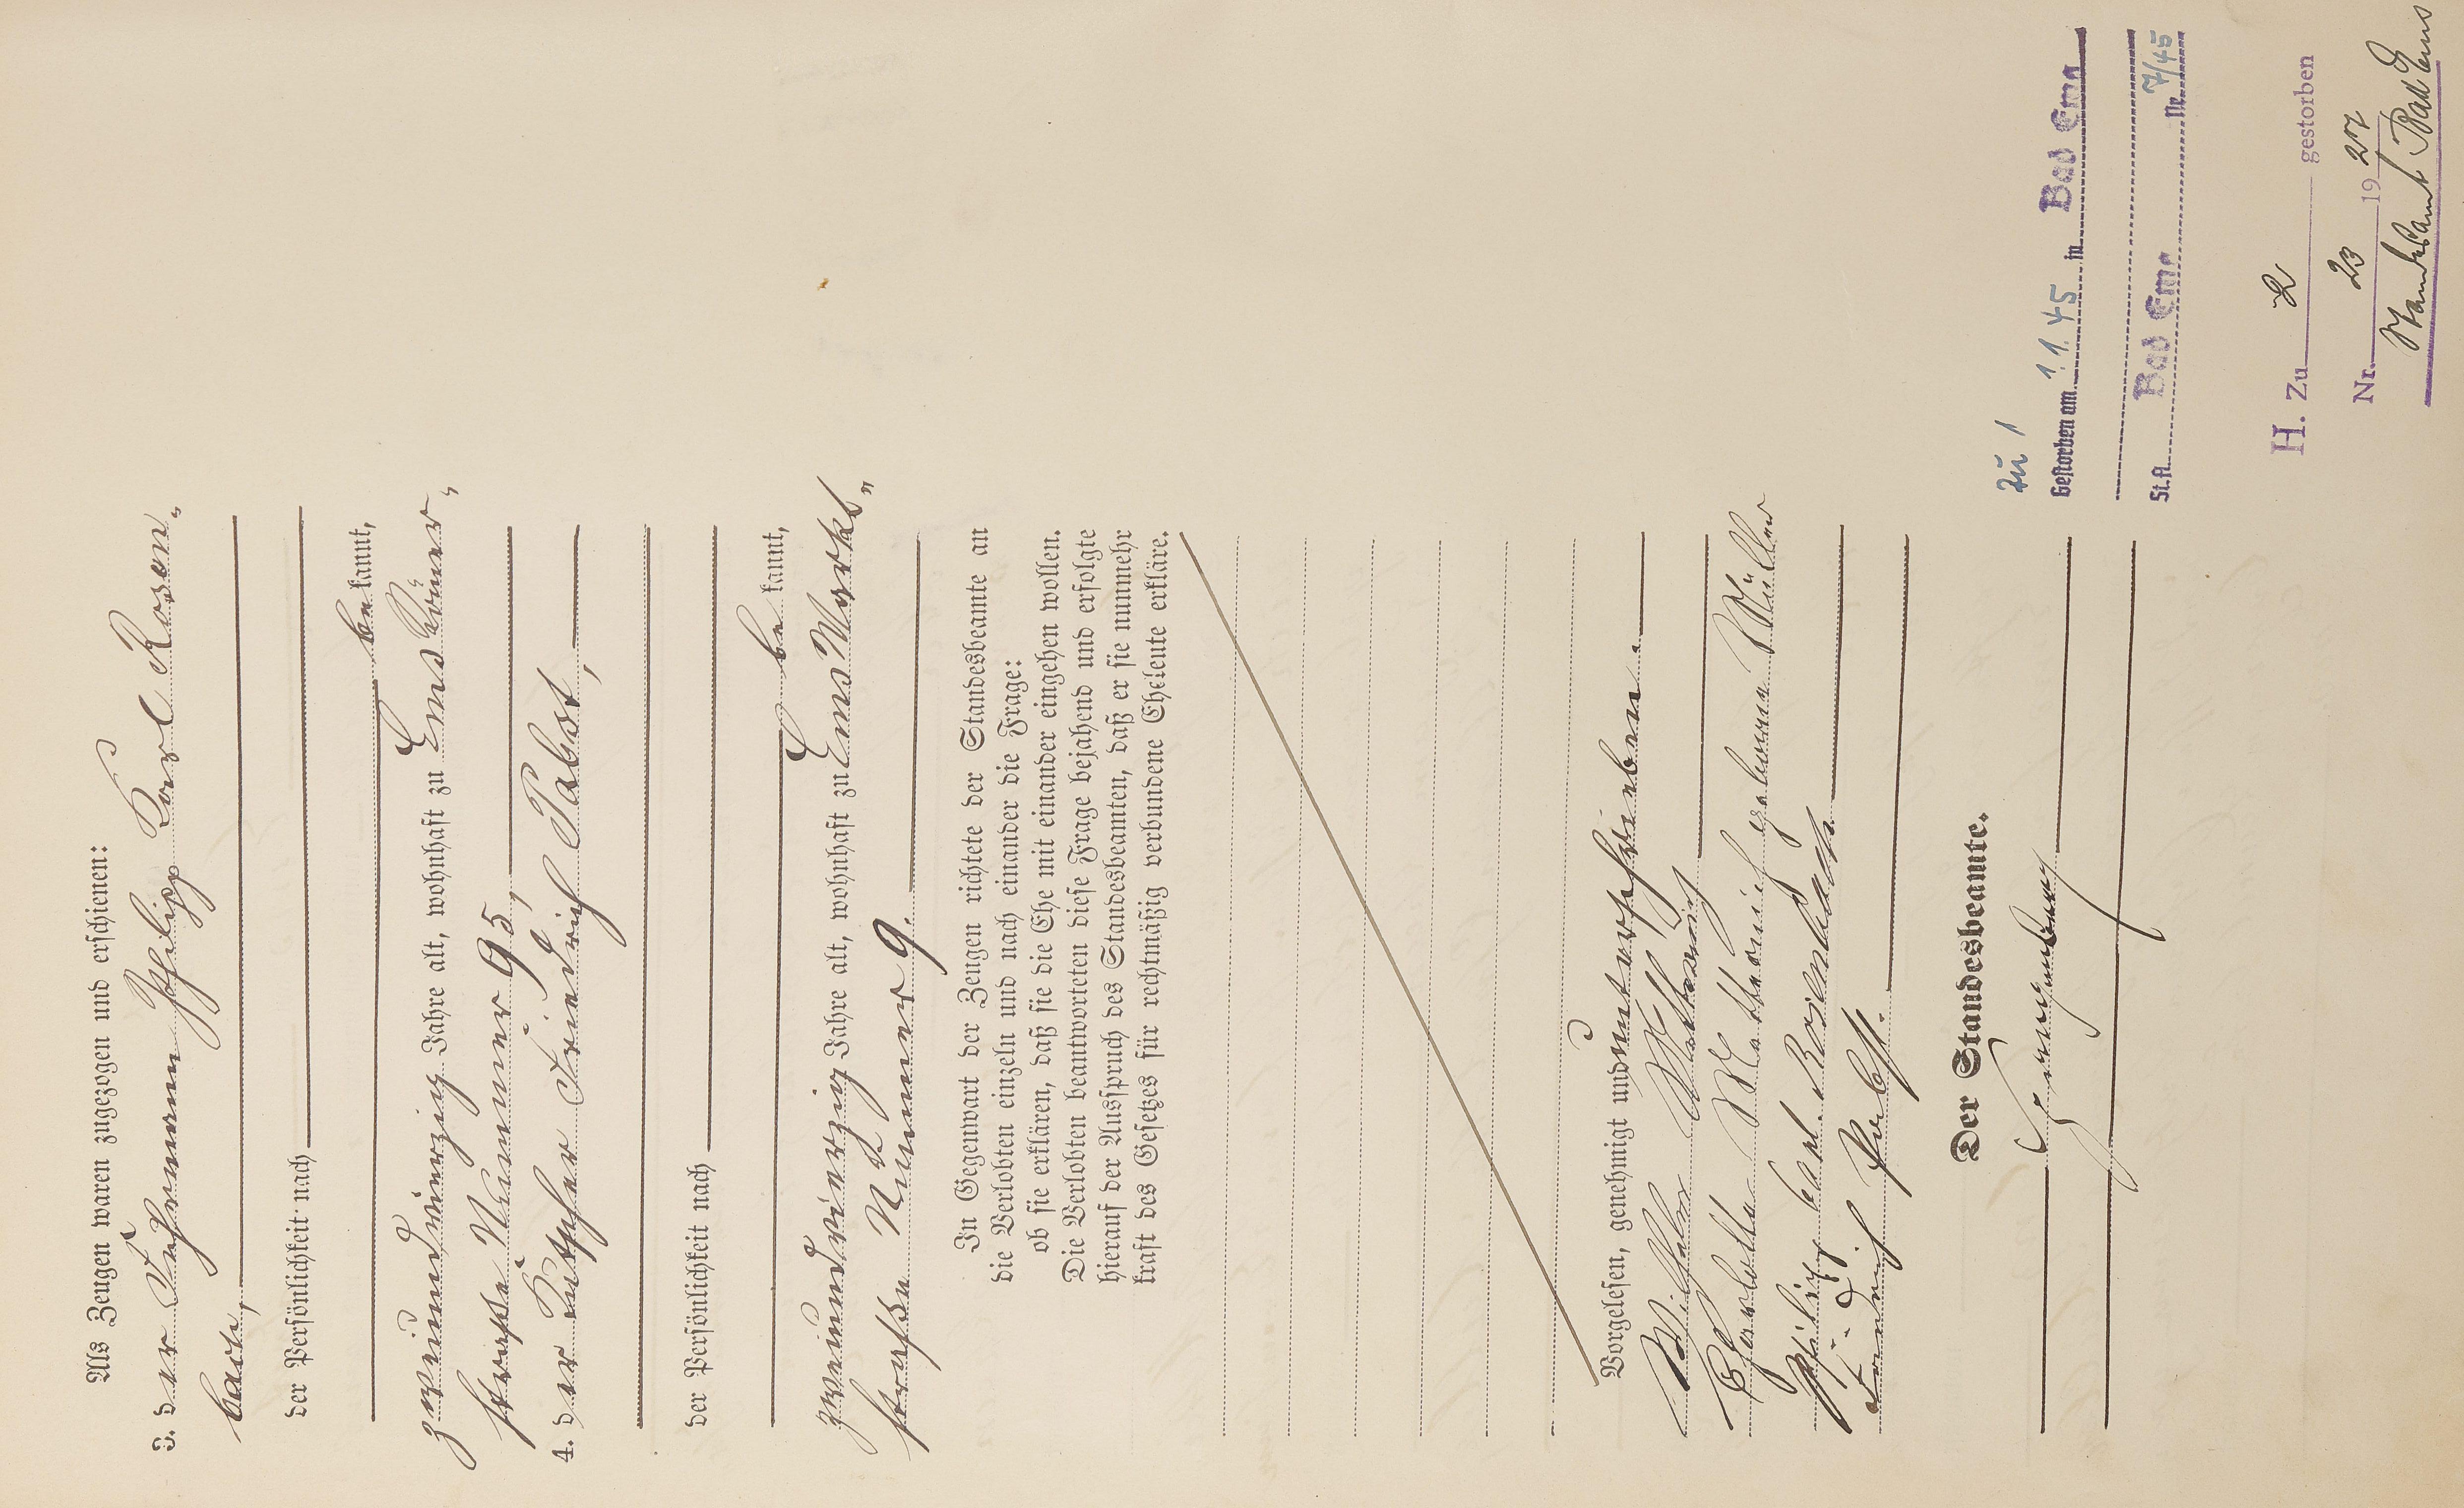 Als Zeugen waren zugezogen und erschienen:
3. der Fuhrmann Philipp Karl Rosen-
bach,
der Persönlichkeit nach
be kannt,
zweiundvierzig Jahre alt, wohnhaft zu Ems Römer-
straße Nummer 95,
4. der Küfer Friedrich Pabst,
der Persönlichkeit nach
be kannt,
zweiundvierzig Jahre alt, wohnhaft zu Ems Markt-
straße Nummer 9.
In Gegenwart der Zeugen richtete der Standesbeamte an
die Verlobten einzeln und nach einander die Frage:
ob sie erklären, daß sie die Ehe mit einander eingehen wollen.
Die Verlobten beantworteten diese Frage bejahend und erfolgte
hierauf der Ausspruch des Standesbeamten, daß er sie nunmehr
kraft des Gesetzes für rechtmäßig verbundene Eheleute erkläre.
Vorgelesen, genehmigt und unterschrieben.
Wilhelm
geborene Müller
Philipp Carl Rosenbach.
Friedrich Pabst.
Der Standesbeamte.
zu 1
Gestorben am 1.1.45 in Bad Ems
St.A. Bad Ems Nr. 7/45
H. Zu 2 gestorben
Nr. 23 19 27
Standesamt Bad Ems